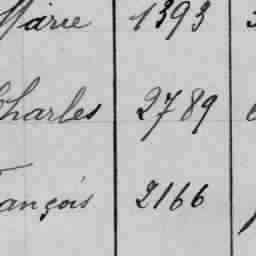 Marie 1393
Charles 2789
ançois 2166